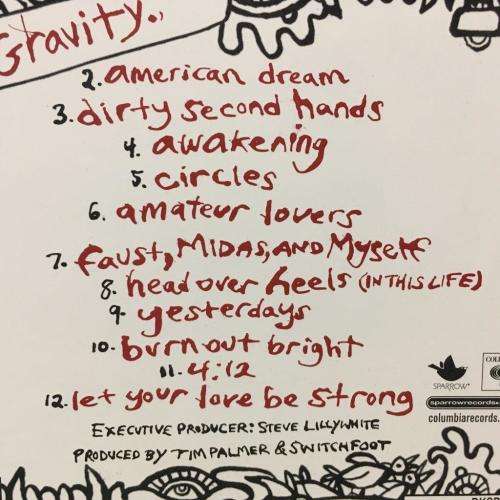 Gravity.,
2. american dream
3. dirty second hands
4. awakening
5. circles
6. amateur lovers
7. faust, MIDAS, AND Myself
8. head over heels (IN THIS LIFE)
9. yesterdays
10. burn out bright
11. 4:12
12. let your love be strong
EXECUTIVE PRODUCER: STEVE LILLYWHITE
PRODUCED BY TIM PALMER & SWITCHFOOT
SPARROW
sparrowrecords.
columbiarecords.